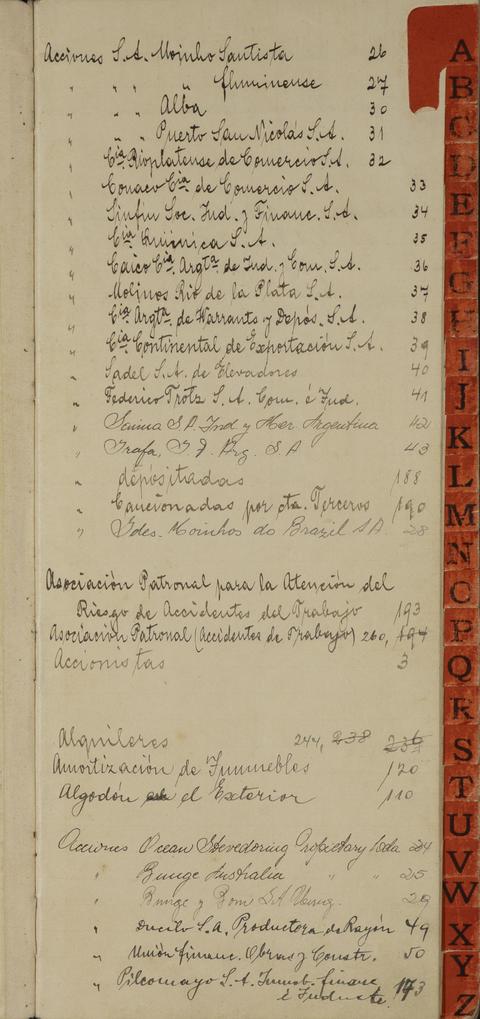 Acciones S.A. Moinho Santista 26
" " " " Fluminense 27
" " " Alba 30
" " " Puerto San Nicolás S.A. 31
" Cía. Rioplatense de Comercio S.A. 32
" Conaco Cía de Comercio S.A. 33
" Sinfin Soc. Ind. y Financ. S.A. 34
" Cía Química S.A. 35
" Caico Cía. Argta de Ind. y Com. S.A. 36
" Molinos Rio de la Plata S.A. 37
" Cía. Argta. de Warrants y Depós. S.A. 38
" Cía Continental de Exportación S.A. 39
" Sadel S.A. de Elevadores 40
" Federico Trotz S.A. Com. é Ind. 41
" S.A. Ind y Mer Argentina 42
" Grafa, I. J. Arg. S.A 43
" depositadas 188
" Caucionadas por cta. Terceros 190
" Gdes. Moinhos do Brazil S A 28
Asociación Patronal para la Atención del
Riesgo de Accidentes del Trabajo 193
Asociación Patronal (Accidentes de Trabajo) 260, 194
Accionistas 3
Alquileres 244, 238 236
Amortización de Inmuebles 120
Algodón el Exterior 110
Acciones Ocean Stevedoring Propietary Ltda 24
" Bunge Australia " " 25
" Bunge y Born S A 29
" Ducilo S.A. Productora de Rayón 49
" Unión financ. Obras y Constr. 50
" Pilcomayo S.A. Inmob. financ
é Industr. 173
A
B
C
D
E
F
G
H
I
J
K
L
M
N
O
P
Q
R
S
T
U
V
W
X
Y
Z